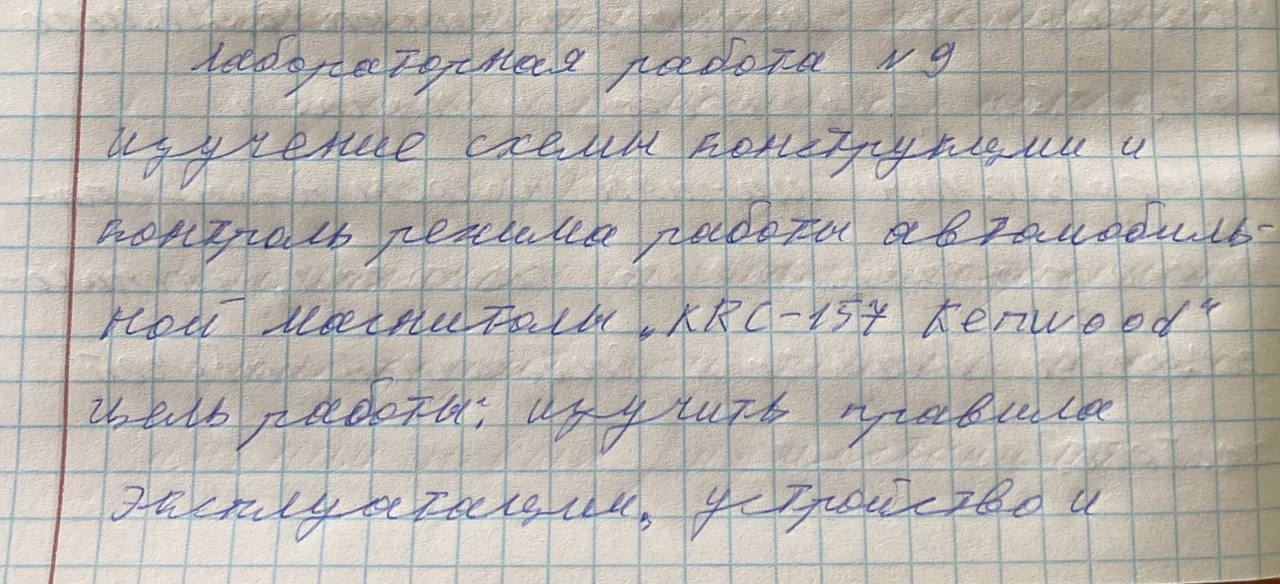 Лабораторная работа N9
изучение схемы конструкции и
контроль режима работы автомобиль-
ной магнитолы „KRC-157 Kenwood“
Цель работы: изучить правила
эксплуатации, устройство и